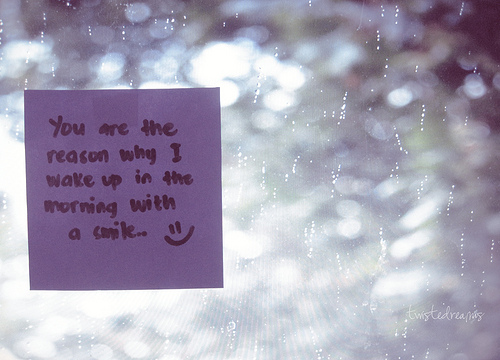 You are the
reason why I
wake up in the
morning with
a smile..
twistedreapds